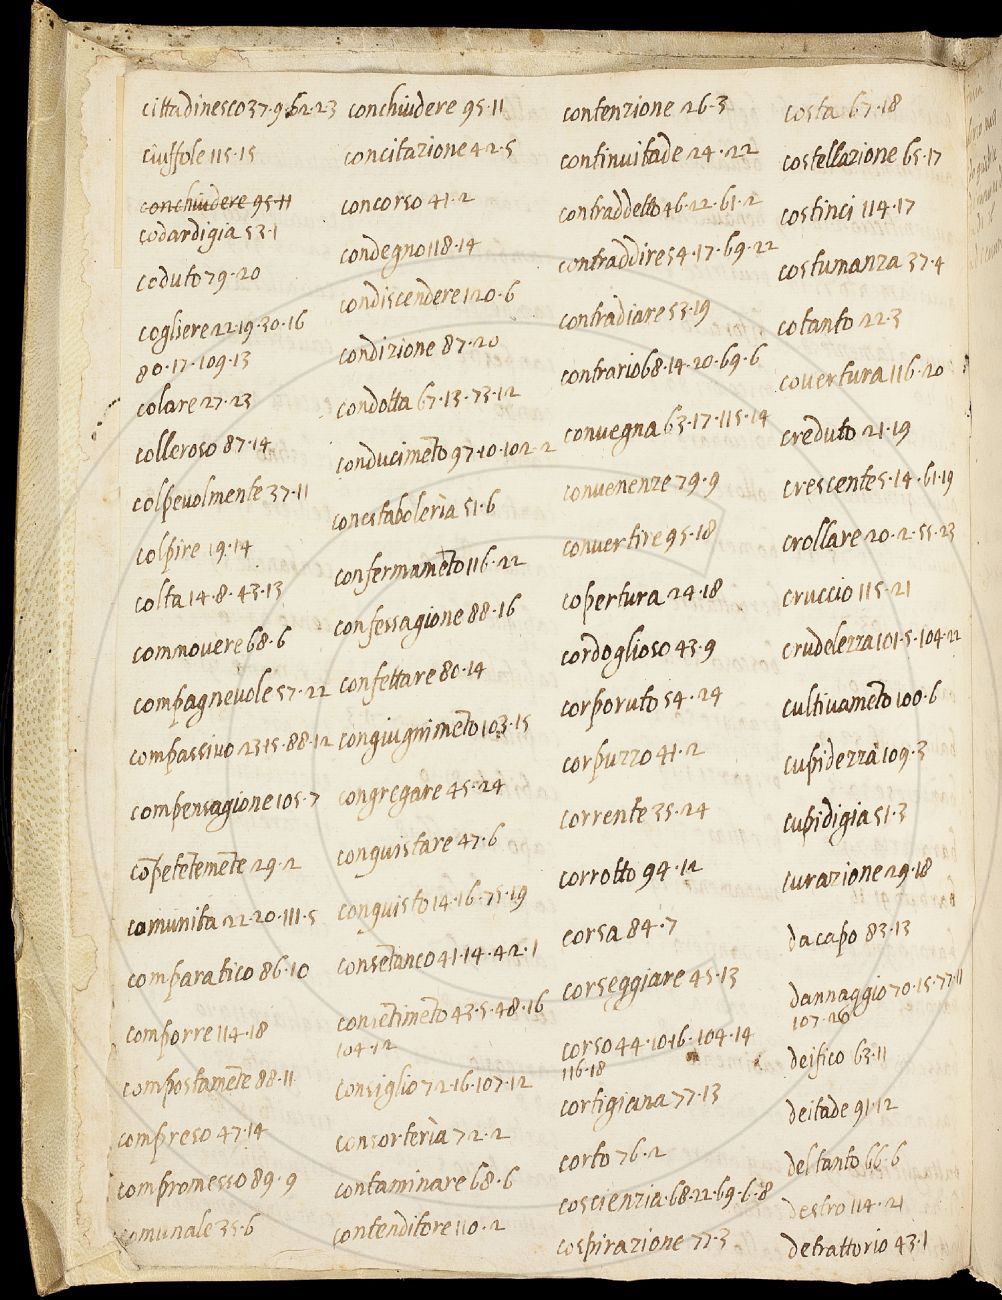 cittadinesco 37·9·62·23
ciuffole 115·15
conchiudere 95·11
codardigia 53·1
coduto 79·20
cogliere 22·19·30·16
80·17·109·13
colare 27·23
colleroso 87·14
colpevolmente 37·11
colpire 19·14
colta 14·8·43·13
commovere 68·6
compagnevole 57·22
compassivo 23·15·88·12
compensagione 105·7
cōpetētemēte 29·2
comunita 22·20·111·5
comparatico 86·10
comporre 114·18
compostamēte 88·11
compreso 47·14
compromesso 89·9
comunale 35·6
conchiudere 95·11
concitazione 42·5
concorso 41·2
condegno 118·14
condiscendere 120·6
condizione 87·20
condotta 67·13·73·12
conducimēto 97·10·102·2
conestaboleria 51·6
confermamēto 116·22
confessagione 88·16
confettare 80·14
congiugnimēto 103·15
congregare 45·24
conquistare 47·6
conquisto 14·16·75·19
consetaneo 41·14·42·1
consētimēto 43·5·48·16
104·12
consiglio 72·16·107·12
consorteria 72·2
contaminare 68·6
contenditore 110·2
contenzione 26·3
continuitade 24·22
contraddetto 46·22·61·2
contraddire 54·17·69·22
contradiare 53·19
contrario 68·14·20·69·6
convegna 63·17·115·14
convenenze 79·9
convertire 95·18
copertura 24·18
cordoglioso 43·9
corporuto 54·24
corpuzzo 41·2
corrente 35·24
corrotto 94·12
corsa 84·7
corseggiare 45·13
corso 44·10·16·104·14
116·18
cortigiana 77·13
corto 76·2
coscienzia·68·22·69·6·8
cospirazione 77·3
costa 67·18
costellazione 65·17
costinci 114·17
costumanza 37·4
cotanto 22·3
covertura 116·20
creduto 21·19
crescente 5·14·61·19
crollare 20·2·55·23
cruccio 115·21
crudelezza 101·5·104·22
cultivamēto 100·6
cupidezza 109·3
cupidigia 51·3
curazione 29·18
da capo 83·13
dannaggio 70·15·77·11
107·26
deifico 63·11
deitade 91·12
del tanto 66·6
destro 114·21
detrattorio 43·1